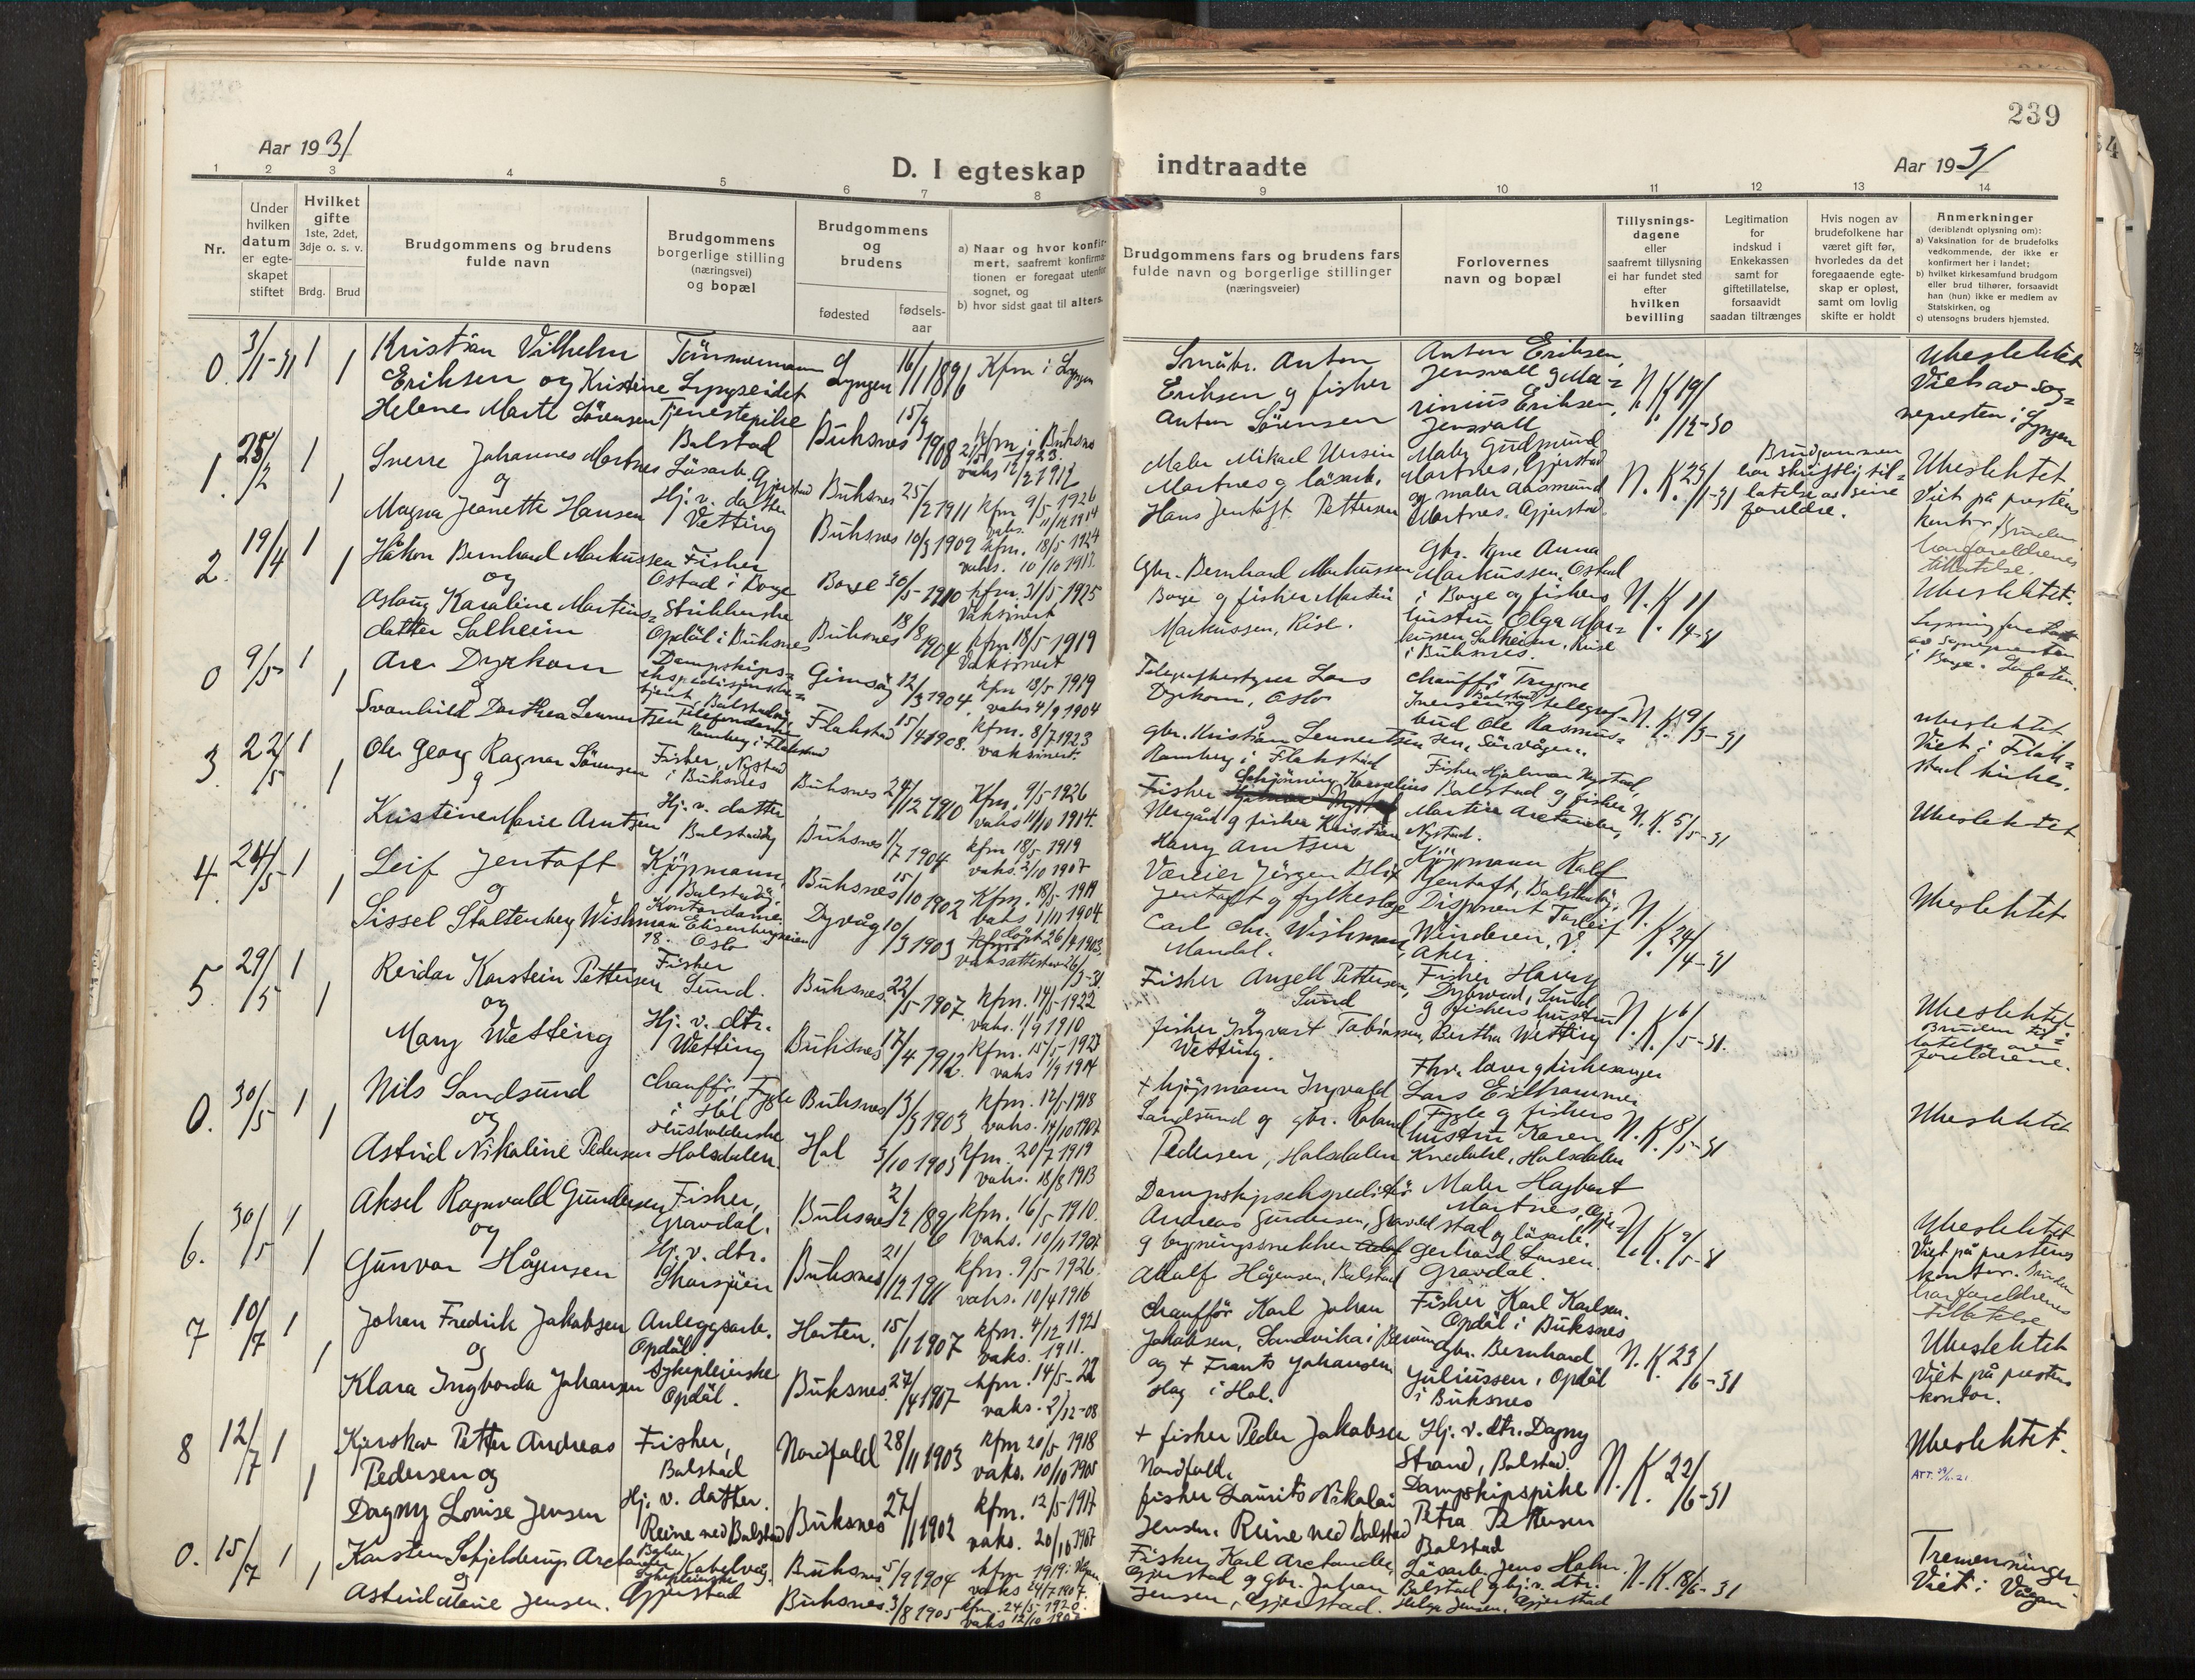 239
Aar 1931
D. I egteskap indtraadte
Aar 1931
1 2 3 4 5 6 7 8 9 10 11 12 13 14
Nr.
Under hvilken datum er egte-skapet stiftet
Hvilket gifte 1ste, 2det, 3dje o. s. v.
Brdg. Brud
Brudgommens og brudens fulde navn
Brudgommens borgerlige stilling (næringsvei) og bopæl
Brudgommens og brudens
fødested
fødsels-aar
a) Naar og hvor konfir-mert, saafremt konfirma-tionen er foregaat utenfor sognet, og
b) hvor sidst gaat til alters.
Brudgommens fars og brudens fars fulde navn og borgerlige stillinger (næringsveier)
Forlovernes navn og bopæl
Tillysnings-dagene eller saafremt tillysning ei har fundet sted efter hvilken bevilling
Legitimation for indskud i Enkekassen samt for giftetillatelse, forsaavidt saadan tiltrænges
Hvis nogen av brudefolkene har været gift før, hvorledes da det foregaaende egte-skap er opløst, samt om lovlig skifte er holdt
Anmerkninger (deriblandt oplysning om):
a) Vaksination for de brudefolks vedkommende, der ikke er konfirmert her i landet;
b) hvilket kirkesamfund brudgom eller brud tilhører, forsaavidt han (hun) ikke er medlem av Statskirken, og
c) utensogns bruders hjemsted.
0. 3/1-31 1 1
Kristian Vilhelm
Eriksen og Kristine
Helene Marte Sörensen
Tömmermann
Lyngseidet
Tjenestepike
Balstad
Lyngen 16/1 1896 Kfm i Lyngen
Buksnes 15/9 1908
Småbr. Anton
Eriksen g fisker
Anton Sörensen
Anton Eriksen,
Jensvoll g Ma=
rinius Eriksen,
Jensvoll
N. K. 19/12-30
Ubeslektet
Viet av sog=
nepresten i Lyngen
1. 25/2 1 1
Sverre Johannes Mortnes
og
Magna Jeanette Hansen
Lösarb. Gjerstad
Hj. v. datter
Vetting
Buksnes 25/2 1911 kfm 9/5 1926
vaks. 11/11 1914
Buksnes 10/3 1909 kfm. 18/5 1924
vaks. 10/10 1913.
Maler Mikael Ursin
Mortnes g lösarb.
Hans Jentoft Pettersen
Maler Gudmund
Mortnes, Gjerstad
og maler Aasmund
Mortnes. Gjerstad
N. K. 23/1-31
Brudgommen
har skriftlig til=
latelse av sine
foreldre.
Ubeslektet
Viet på prestens
kontor. Bruden
har foreldrenes
tillatelse.
2. 19/4 1 1
Håkon Bernhard Markussen
og
Aslaug Karoline Martins=
datter Solheim
Fisker
Ostad i Borge
Strikkerske
Opdöl i Buksnes
Borge 30/5-1910 kfm. 31/5-1925
Vaksinert
Buksnes 18/8 1904 kfm. 18/5-1919
Vaksinert
Gbr. Bernhard Markussen
Borge g fisker Martin
Markussen, Rise.
Gbr. kone Anna
Markussen, Ostad
i Borge og fiskers
hustru Olga Mar=
kussen Solheim, Rise
i Buksnes.
N. K. 11/4-31
Ubeslektet.
Lysning foretatt
av sognepresten
i Borge. Lofoten.
0 9/5 1 1
Are Dyrkorn
g
Svanhild Dorthea Lennertsen
Dampskips=
ekspedisjons=
tjent, Balstadöy
Telefondame
Ramberg i Flakstad
Gimsöy 12/3 1904 kfm 18/5-1919
vaks 4/9 1904
Flakstad 15/4 1908. kfm. 8/7 1923
vaksinert.
Telegrafbestyrer Lars
Dyrkorn, Oslo
g
gbr. Kristian Lennertsen
Ramberg i Flakstad
Chaufför Trygve
Balstad
bud Ole Rasmus=
sen, Sörvågen.
N. K. 9/3-31
Ubeslektet
Viet i Flak=
stad kirke.
3 22/5 1 1
Ole Georg Ragnar Sörensen
g
Kristine Marie Arntsen
Fisker, Nystad
i Buksnes
Hj. v. datter
Balstadöy
Buksnes 24/12 1910 Kfm. 9/5-1926
vaks 11/10 1914.
Buksnes 1/7 1904 kfm 18/5 1919
vaks. 3/10 1907
Fisker Kornelius
g fisker Kristian
Harry Arntsen
Fisker Hjalmar Nystad,
Balstad g fisker
Nystad.
N. K. 5/5-31
Ubeslektet
4. 24/5 1 1
Leif Jentoft
og
Sissel Stoltenberg Wishman
Kjöpmann,
Balstadöy.
Kontordame
Eilsenbergveien
18. Oslo
Buksnes 15/10 1902 Kfm. 18/5-1919
vaks 1/11 1904.
Dyvåg 10/3 1903 döpt 26/4 1903.
vaksattest 26/3-31
Væreier Jörgen Blix
Jentoft g fylkeslege
Carl Chr. Wishman,
Mandal.
Kjöpmann Rolf
Jentoft, Balstadöy.
Disponent Torleif
Winderen, V.
Aker.
N. K. 24/4-31
Ubeslektet
5. 29/5 1 1
Reidar Karstein Pettersen
og
Mary Wetting
Fisker
Sund.
Hj. v. dtr.
Wetting
Buksnes 22/5 1907. kfm. 14/5-1922
vaks. 1/9 1910
Buksnes 17/4 1912. kfm. 15/5-1927
vaks 1/9 1914
Fisker Angell Pettersen,
Sund
g
fisker Ingvart Tobiassen,
Wetting.
Fisker Harry
Dybwad, Sund
g fiskers hustru
Bertha Wetting
N. K. 6/5-31.
Ubeslektet
Bruden til=
latelse av
foreldrene.
0. 30/5 1 1
Nils Sandsund
og
Astrid Nikoline Pedersen
Chaufför, Fygle
i Hol
Husholderske
Holsdalen
Buksnes 13/3 1903 kfm. 12/5-1918
vaks. 14/10 1907
Hol 3/10 1903 kfm. 20/7 1919
vaks. 18/8 1913
+ kjöpmann Ingvald
Sandsund og gbr. Roland
Pedersen, Holsdalen
Fhv. lærer g kirkesanger
Lars Eidhammer
Fygle g fiskers
hustru Karen
Knedahl, Holsdalen
N. K. 8/5-31
Ubeslektet
6. 30/5 1 1
Aksel Ragnvald Gundersen
og
Gunvor Hågensen
Fisker,
Gravdal.
Hj. v. dtr.
Skarsjöen
Buksnes 2/2 1896 kfm. 16/5 1910.
vaks. 10/11 1902
Buksnes 21/12 1911 kfm. 9/5-1926.
vaks. 10/4 1916
Dampskipsekspeditör
Andreas Gundersen, Gravdal
g bygningssnekker
Adolf Hågensen, Balstad
Maler Hagbart
Mortnes, Gjer=
stad og lösarb.
Gerhard Larsen
Gravdal.
N. K. 9/5-31
Ubeslektet
Viet på prestens
kontor. Bruden
har foreldrenes
tillatelse
7 10/7 1 1
Johan Fredrik Jakobsen
og
Klara Ingborda Johansen
Anleggsarb.
Opdöl
Sykepleierske
Opdöl.
Horten. 15/1 1907 kfm. 4/12 1921
vaks. 1911.
Buksnes. 27/4 1907 kfm. 14/5-22
vaks. 2/12-08
Chaufför Karl Johan
Jakobsen, Sandvika i Bærum
og + Frants Johansen
Hag i Hol.
Fisker Karl Karlsen
Opdöl i Buksnes
gbr. Bernhard
Juliussen, Opdöl
i Buksnes
N. K. 23/6-31
Ubeslektet
Viet på prestens
kontor.
8 12/7 1 1
Kjerskov Petter Andreas
Pedersen og
Dagny Lovise Jensen
Fisker,
Balstad
Hj. v. datter.
Reine ved Balstad
Nordfold 28/11 1903 kfm 20/5 1918
vaks. 10/10 1905
Buksnes 27/1 1902 kfm. 12/5-1917
vaks. 20/10 1907
+ fisker Peder Jakobsen
Nordfold.
fisker Laurits Nikolai
Jensen. Reine ved Balstad
Hj. v. dtr. Dagny
Strand, Balstad.
Dampskipspike
Petra Pettersen
Balstad
N. K. 22/6-31
Ubeslektet.
0. 15/7 1 1
Karsten Schjelderup Arctander
og
Astrid Marie Jensen.
Baker, Kabelvåg.
Sykepleierske
Gjerstad
Buksnes 5/9 1904 kfm 1919. Vågan
vaks 24/7 1907.
Buksnes. 3/8 1905 kfm. 24/5 1920.
vaks 12/10 1907
Fisker Karl Arctander
Gjerstad g gbr. Johan
Jensen, Gjerstad.
Lösarb. Jens Holm.
Balstad g hj. v. dtr.
Helga Jensen, Gjerstad
N. K. 18/6-31
Tremenninger
Viet i Vågan